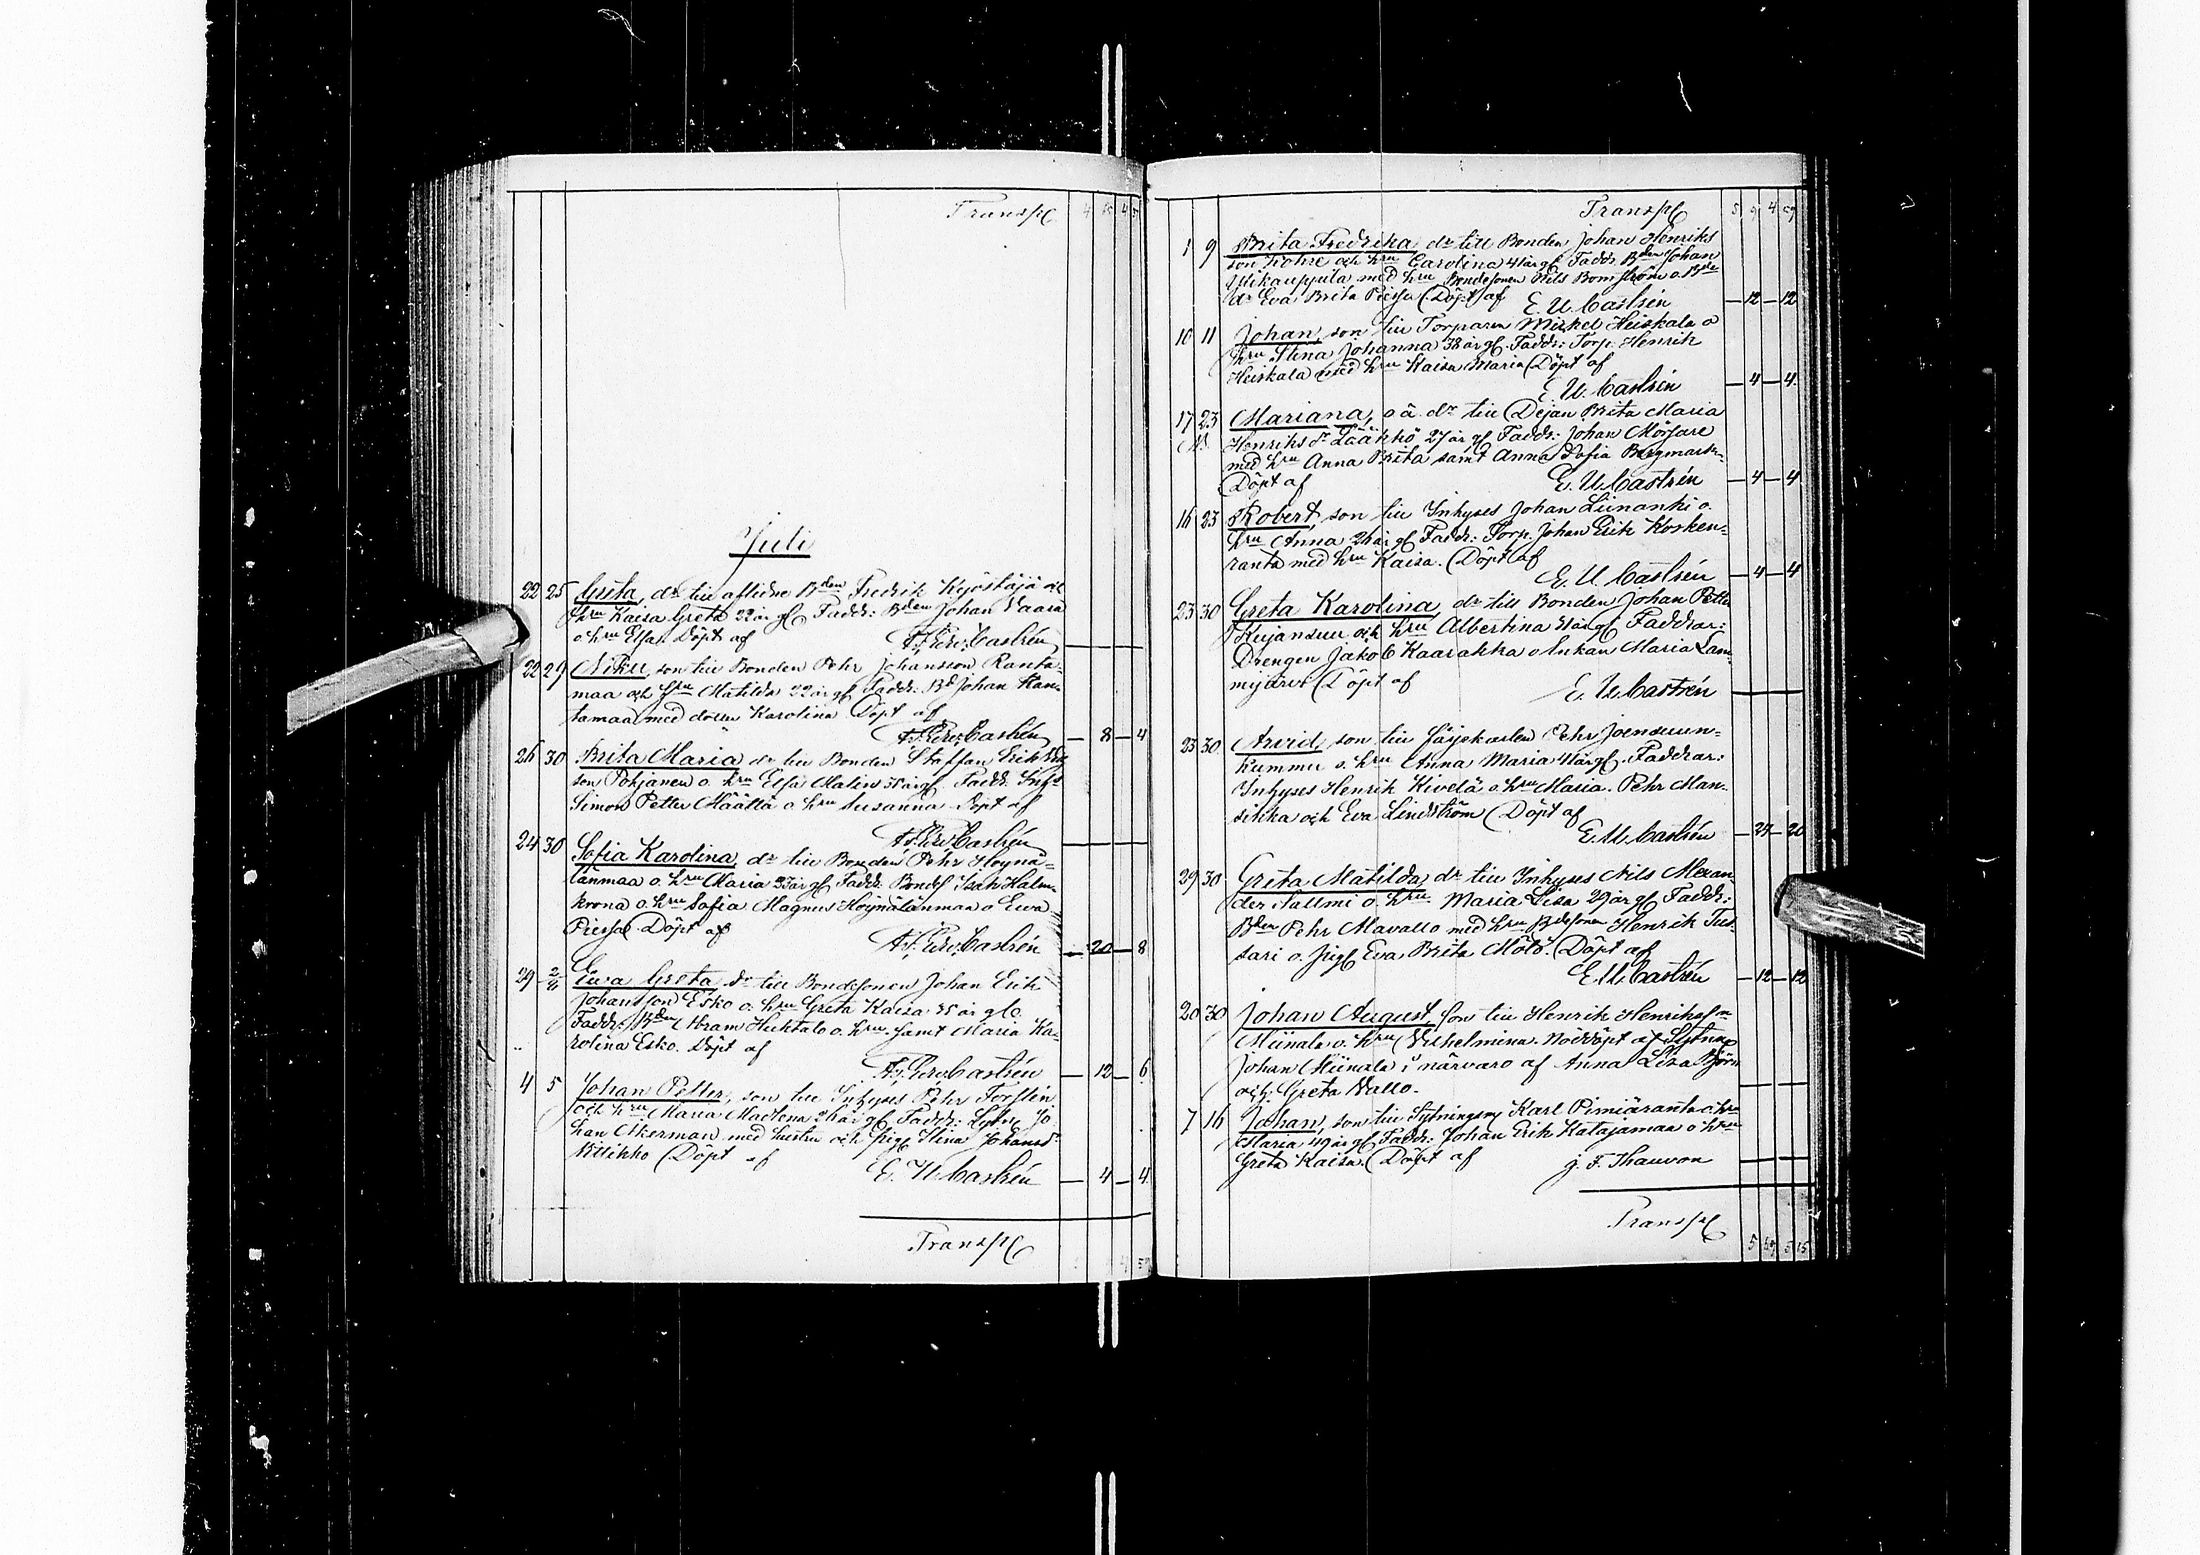 Transp
Juli
22 25 Greta, dr till aflidne Bden Fredrik Kyöstäjä och
hru Kaisa Greta 22 år gl Faddr: Bden Johan Vaara
o hru Elsa. Döpt af Castrén
22 29 son till Bonden Pehr Johansson Ranta-
maa och hru Matilda 22 år gl Faddr: Bd Johan Ran-
tamaa med dottern Karolina Döpt af
Castrén — 8 — 4
26 30 Brita Maria dr till Bonden Staffan Eriks
son Pohjanen o. hru Elsa Malin år gl Fadd.
Simon Petter Määttä o hru Susanna Döpt af
Castrén
24 30 Sofia Karolina, dr till Bonden Pehr Hoynä-
länmaa o. hru Maria 33 år gl Faddr: Bondes Isak Halm-
krona o. hru Sofia Magnus Hoynälänmaa o Ewa
Piessa Döpt af
Castrén — 20 — 8
29 2/8 Ewa Greta dr till Bondesonen Johan Erik
Johansson Esko o. hru Greta Kaisa 35 år gl.
Faddr: Bden Abram Huhtalo o. hru. samt Maria Ka-
rolina Esko. Döpt af
Castrén — 12 — 6
4 5 Johan Petter, son till Inhyses Pehr Forstén
och hru Maria Madlena 26 år gl Faddr: Lytn. Jo
han Åkerman med hustru och pig Stina Johansdr
Nillikko Döpt af
E. U. Castrén — 4 — 4
Transp
Transp 5 9 4 59
1 9 Brita Fredrika dr till Bonden Johan Henriks
son och hru Carolina 41 år gl Faddr. Bden Johan
Ylikauppila med hru Bondesonen Nils Bomström o. Bde
dr Eva Brita Piessa Döpt af E. U. Castrén — 12 — 12
10 11 Johan, son till Torparen Mickel Heiskala o
hru Stina Johanna 38 år gl. Faddr: Torp. Henrik
Heiskala med hru Kaisa Maria Döpt af
E. U. Castrén — 4 — 4
17 23 Mariana, o ä. dr till Dejan Brita Maria
Henriks dr Lääkkö 27 år gl Faddr: Johan Mörsare
med hru Anna Brita samt Anna Sofia Bergmark
Döpt af E. U. Castrén — 4 — 4
16 23 Robert, son till Inhyses Johan Liinanki o.
hru Anna 26 år gl Faddr: Torp. Johan Erik Kosken-
ranta med hru Kaisa. Döpt af
E. U. Castrén — 4 — 4
23 30 Greta Karolina, dr till Bonden Johan Petter
Kujansuu och hru Albertina år gl Faddrar:
Drengen Jakob Kaarakka o Enkan Maria Lam-
mijärvi Döpt af
E. U. Castrén
23 30 Arvid, son till färjekarlen Pehr Joensuun-
Kummu o. hru Anna Maria 41 år gl. Faddrar:
Inhyses Henrik Kivelä o. hru Maria. Pehr Man-
sikka och Eva Lindström Döpt af
E. U. Castrén — 24 — 20
29 30 Greta Matilda, dr till Inhyses Nils Alexan-
der Sallmi o. hru Maria Lisa 29 år gl Faddr:
Bden Pehr Mavallo med hru Bdesonen Henrik Tus-
sari o. pig Eva Brita Mölö. Döpt af
E. U. Castrén — 12 — 12
20 30 Johan August, son till Henrik Henriksson
Miinala o. hru Vilhelmina. Nöddöpt af Sytning
Johan Miinala i närvaro af Anna Lisa Björn
och Greta Vallo.
7 16 Johan, son till Sytningsmn Karl Pimiäranta o. hru
Maria 49 år gl Faddr: Johan Erik Katajamaa o hru
Greta Kaisa. Döpt af
J. F. Thauvon
Transp